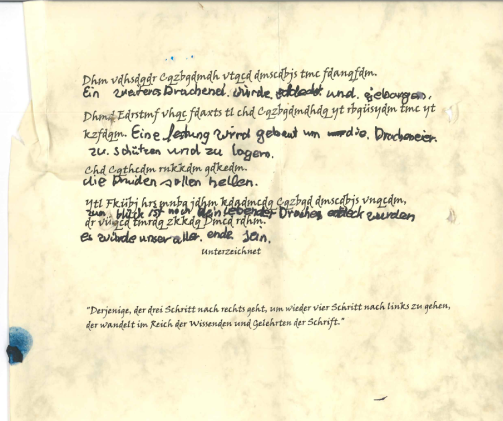 Dhm vdhsdgdr Cqzbgdmdh vtqcd dmscdbjs tmc fdanqfdm.
Ein weiteres Drachenei. wurde entdeckt und. geborgen.
Dhmd Edrstmf vhqc fdaxts tl chd Cqzbgdmdhdq yt rbgüsydm tmc yt
kzfdqm. Eine festung wird gebaut um die. Dracheneier.
zu. schützen und zu lagern.
Chd Cqthcdm rnkkdm gdkedm.
die Druiden sollen helfen.
Ytl Fkübj hrs mnbg jdhm kdadmcdq Cqzbgd dmscdbjs vnqcdm,
zum glück ist noch kein lebender Drache entdeck wurden
dr vüqcd tmrdq zkkdq Dmcd rdhm.
es würde unser aller. ende sein.
Unterzeichnet
"Derjenige, der drei Schritt nach rechts geht, um wieder vier Schritt nach links zu gehen,
der wandelt im Reich der Wissenden und Gelehrten der Schrift."